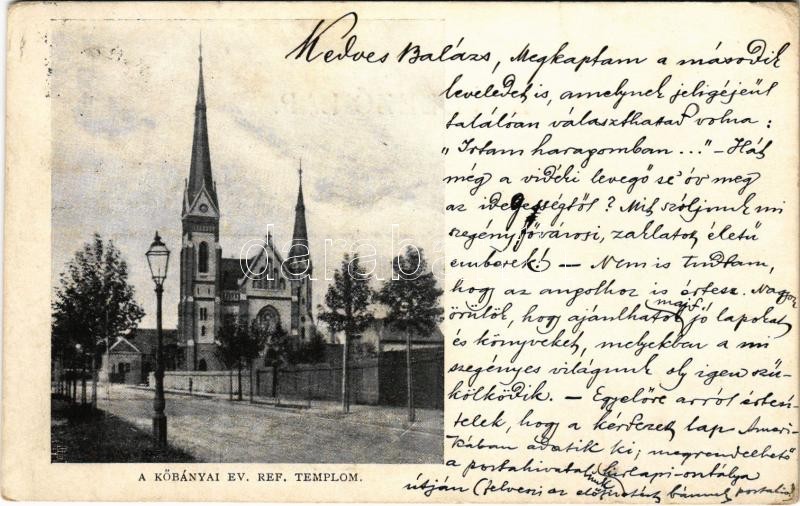 Kedves Balázs, Megkaptam a második
leveledet is, amelynek jeligéjéül
találóan választhattad volna:
"Irtam haragomban..." – Hát
még a vidéki levegő se óv meg
az idegességtől? Mit szóljunk mi
szegény fővárosi, zaklatott életű
emberek! – Nem is tudtam,
hogy az angolhoz is értesz. Nagyon
örülök, hogy ajánlhatok majd jó lapokat
és könyveket, melyekben a mi
szegényes világunk oly igen szű-
kölködik. – Egyelőre arról értesí-
telek, hogy a kérdezett lap Ameri-
kában adatik ki; megrendelhető
a postahivatalnak hirlapi-osztálya
útján (felveszi az előfizetést bármely postahiv.)
darabanth
A KŐBÁNYAI EV. REF. TEMPLOM.